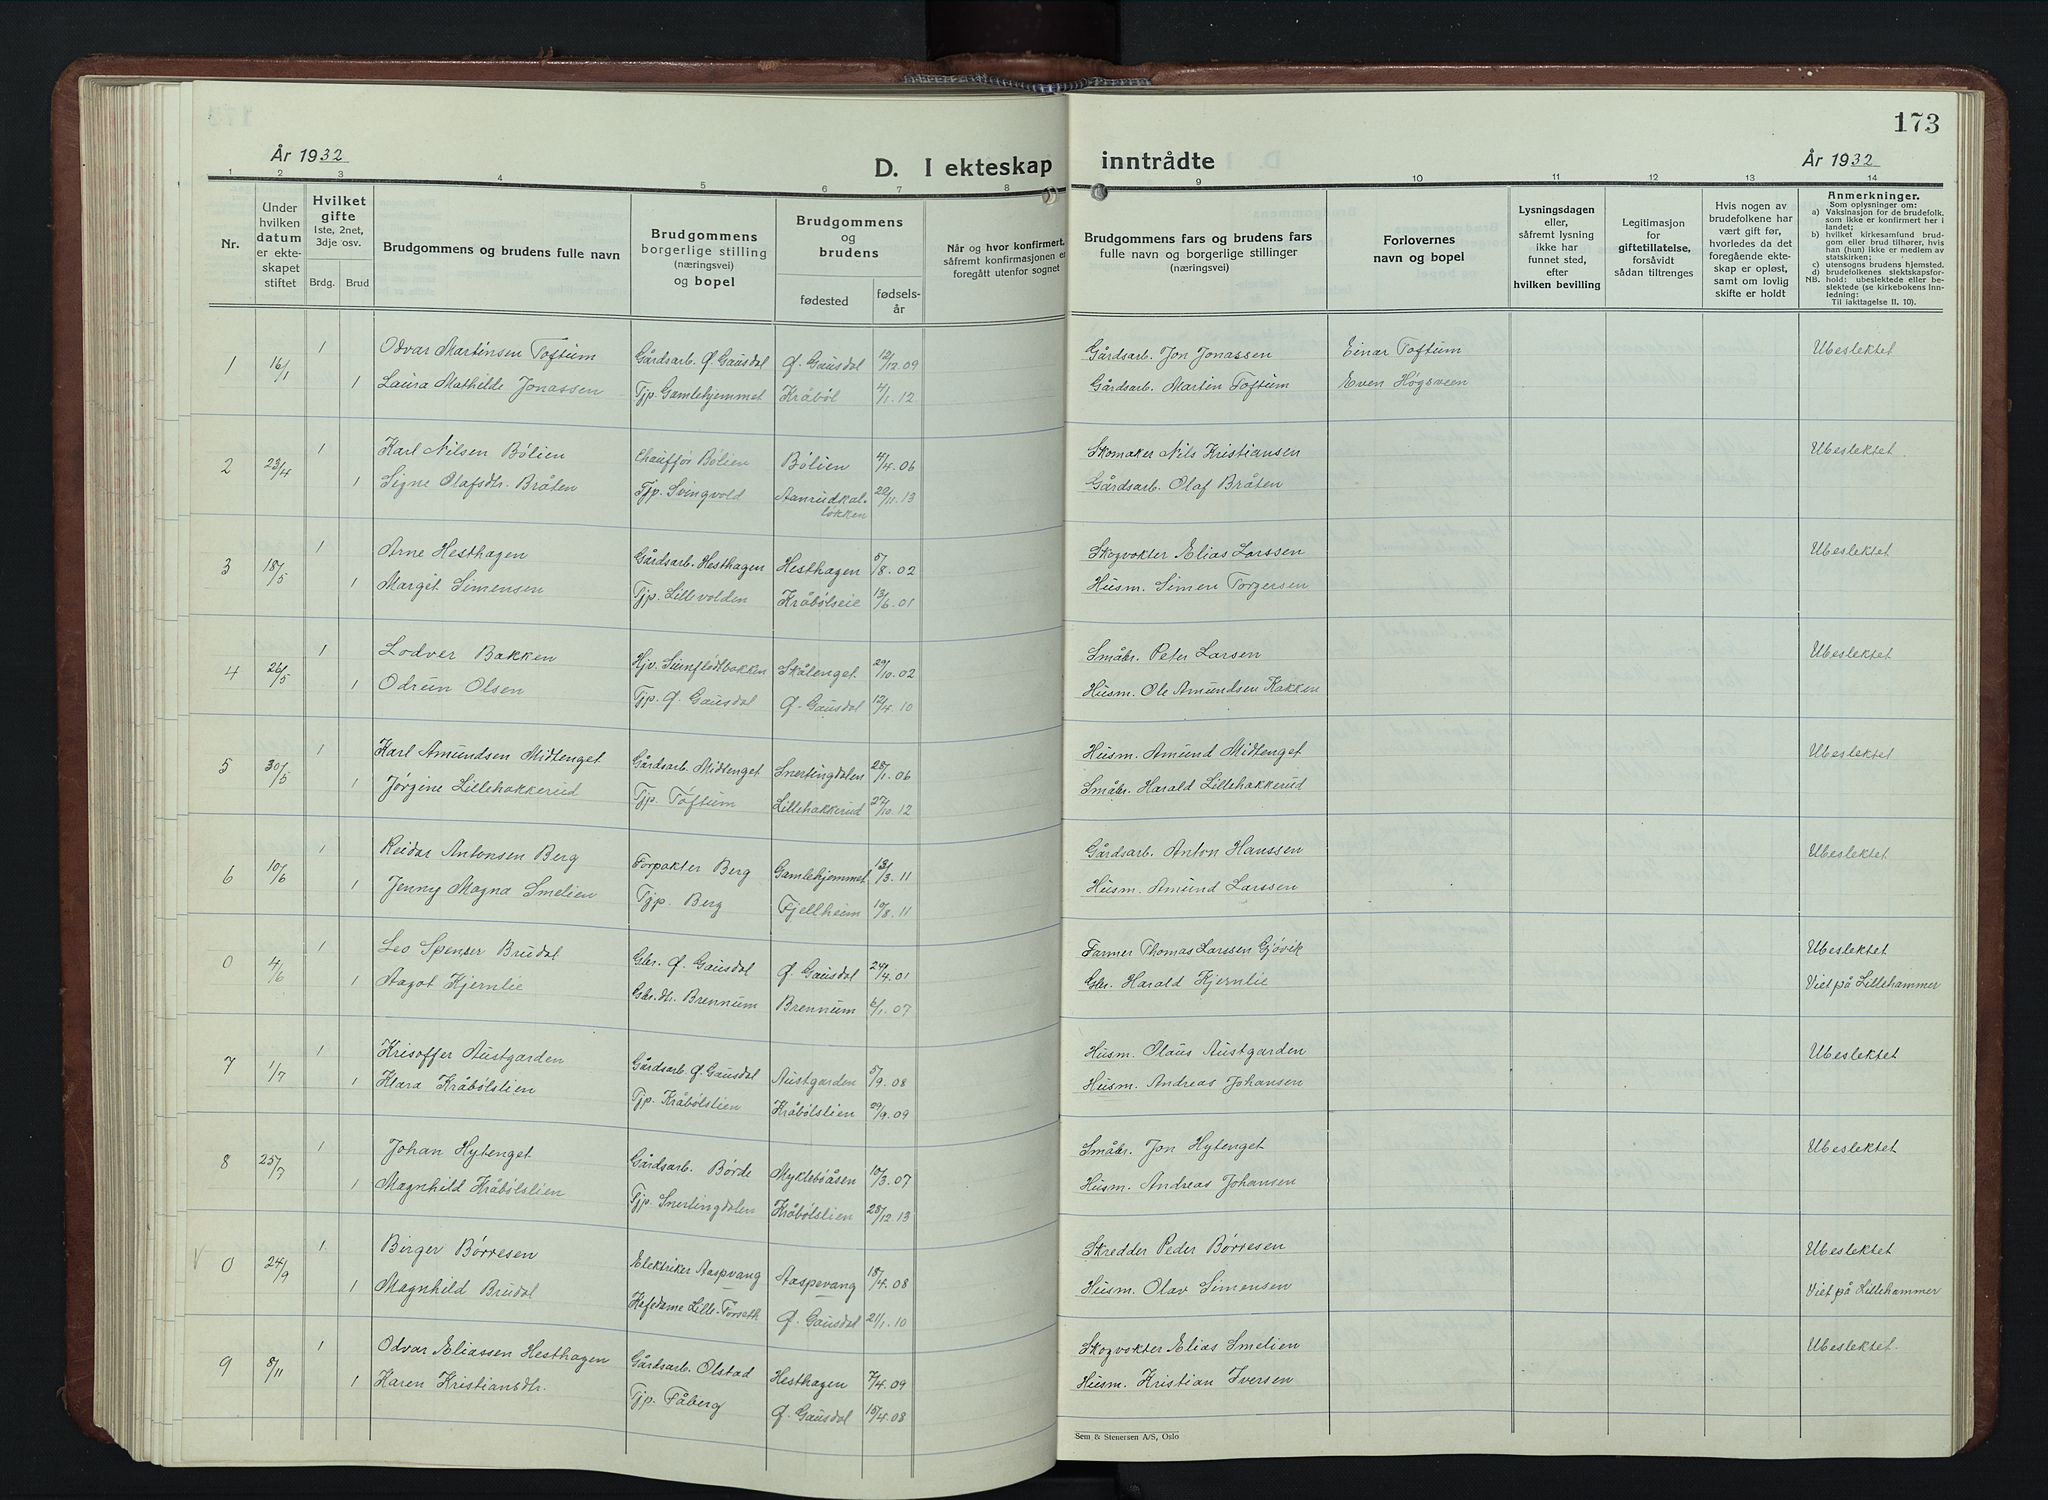 173
År 1932
D. I ekteskap inntrådte
År 1932
1 2 3 4 5 6 7 8 9 10 11 12 13 14
Nr.
Under hvilken datum er ekteskapet stiftet
Hvilket gifte 1ste, 2net, 3dje osv.
Brdg. Brud
Brudgommens og brudens fulle navn
Brudgommens borgerlige stilling (næringsvei) og bopel
Brudgommens og brudens
fødested
fødsels-år
Når og hvor konfirmert, såfremt konfirmasjonen er foregått utenfor sognet
Brudgommens fars og brudens fars fulle navn og borgerlige stillinger (næringsvei)
Forlovernes navn og bopel
Lysningsdagen eller, såfremt lysning ikke har funnet sted, efter hvilken bevilling
Legitimasjon for giftetillatelse, forsåvidt sådan tiltrenges
Hvis nogen av brudefolkene har vært gift før, hvorledes da det foregående ekteskap er opløst, samt om lovlig skifte er holdt
Anmerkninger.
Som oplysninger om:
a) Vaksinasjon for de brudefolk, som ikke er konfirmert her i landet;
b) hvilket kirkesamfund brudgom eller brud tilhører, hvis han (hun) ikke er medlem av statskirken;
c) utensogns brudens hjemsted.
d) brudefolkenes slektskapsforhold: ubeslektede eller beslektede (se kirkebokens Innledning:
NB. Til iakttagelse II. 10).
1 16/1 1 Odvar Martinsen Toftum Gårdsarb. Ø. Gausdal Ø. Gausdal 12/12.09 Gårdsarb. Jon Jonassen Einar Toftum Ubeslektet
1 Laura Mathilde Jonassen Tjp. Gamlehjemmet Kråbøl 4/1.12 Gårdsarb. Martin Toftum Even Høgsveen
2 23/4 1 Karl Nilsen Bölien Chauffør Bölien Bölien 4/4.06 Skomaker Nils Kristiansen Ubeslektet.
1 Signe Olafsdtr. Bråten Tjp. Svingvold Aanrudkal-løkken 22/11.13 Gårdsarb. Olaf Bråten
3 18/5 1 Arne Hesthagen Gårdsarb. Hesthagen Hesthagen 5/8.02 Skogvokter Elias Larssen Ubeslektet
1 Margit Simensen Tjp. Lillevolden Kråbölseie 13/6.01 Husm. Simen Torgersen
4 26/5 1 Lodver Bakken Skålenget 29/10.02 Småbr. Peter Larsen Ubeslektet
1 Odrun Olsen Tjp. Ø. Gausdal Ø. Gausdal 12/4.10 Husm. Ole Amundsen Kakken
5 30/5 1 Karl Amundsen Midtenget Gårdsarb. Midtenget Snertingdalen 28/1.06 Husm. Amund Midtenget Ubeslektet
1 Jørgine Lillehakkerud Tjp. Toftum Lillehakkerud 27/10.12 Småbr. Harald Lillehakkerud
6 10/6 1 Reidar Antonsen Berg Forpakter Berg Gamlehjemmet 13/3.11 Gårdsarb. Anton Hanssen Ubeslektet
1 Jenny Magna Smelien Tjp. Berg Fjellheim 19/8.11 Husm. Amund Larssen
0 4/6 1 Leo Spenser Brudal Gbr. Ø. Gausdal Ø. Gausdal 24/4.01 Farmer Thomas Larssen Gjøvik Ubeslektet
1 Aagot Kjernlie Gbr.dtr. Brennum Brennum 6/1.07 Gbr. Harald Kjernlie Viet på Lillehammer
7 1/7 1 Krisoffer Austgarden Gårdsarb. Ø. Gausdal Austgarden 5/9.08 Husm. Olaus Austgarden Ubeslektet
1 Klara Kråbölslien Tjp. Kråbölslien Kråbölslien 29/9.09 Husm. Andreas Johansen
8 25/7 1 Johan Hytenget Gårdsarb. Børde Myklebøåsen 10/3.07 Småbr. Jon Hytenget Ubeslektet
1 Magnhild Kråbölslien Tjp. Snertingdalen Kråbölslien 28/12.13 Husm. Andreas Johansen
V 0 24/9 1 Birger Børresen Elektriker Aaspvang Aaspevang 18/4.08 Skredder Peder Børresen Ubeslektet
1 Magnhild Brudal Kafedame Lille-Forseth Ø. Gausdal 21/1.10 Husm. Olav Simensen Viet på Lillehammer
9 8/11 1 Odvar Eliassen Hesthagen Gårdsarb. Olstad Hesthagen 7/4.09 Skogvokter Elias Smelien Ubeslektet.
1 Karen Kristiansdtr. Tjp. Fåberg Ø. Gausdal 15/4.08 Husm. Kristian Iversen
Sem & Stenersen A/S, Oslo